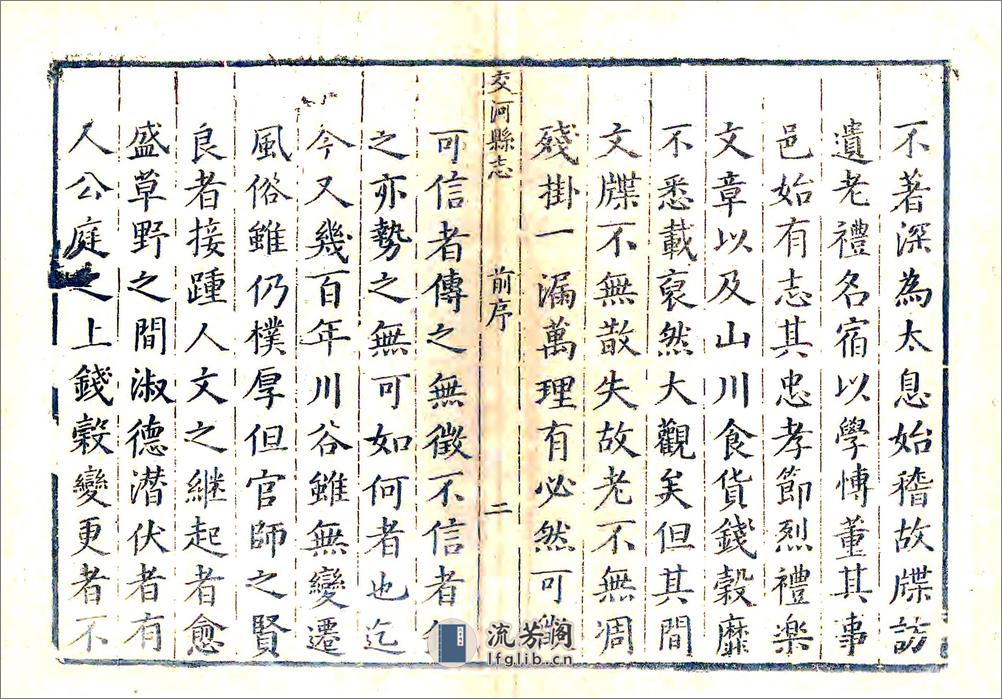 不著深為太息始稽故牒訪
遺老禮名宿以學愽董其事
邑始有志其忠孝節烈禮樂
文章以及山川食貨錢穀靡
不悉載裒然大觀矣但其間
文牒不無散失故老不無凋
殘掛一漏萬理有必然可
交河縣志 前序 二
可信者傳之無徵不信者
之亦勢之無可如何者也迄
今又幾百年川谷雖無變遷
風俗雖仍樸厚但官師之賢
良者接踵人文之継起者愈
盛草野之間淑德潜伏者有
人公庭之上錢穀變更者不
流芳閣
lfglib.cn